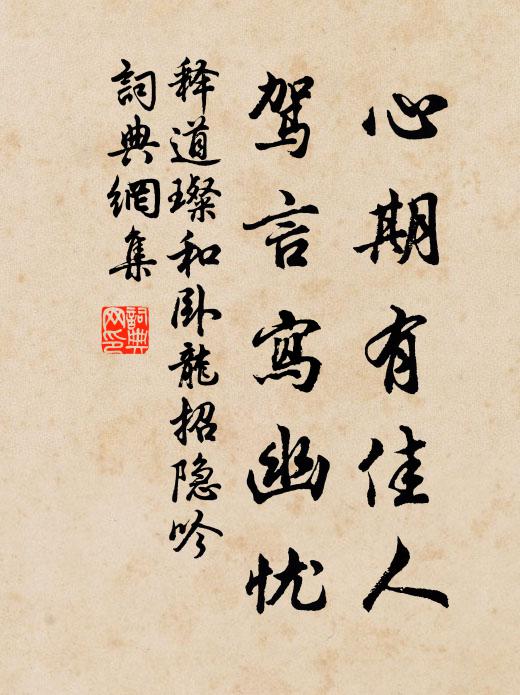 心期有佳人
驾言寫幽忧
释道璨和卧龍招隐吟
詞典網集
詞典網印